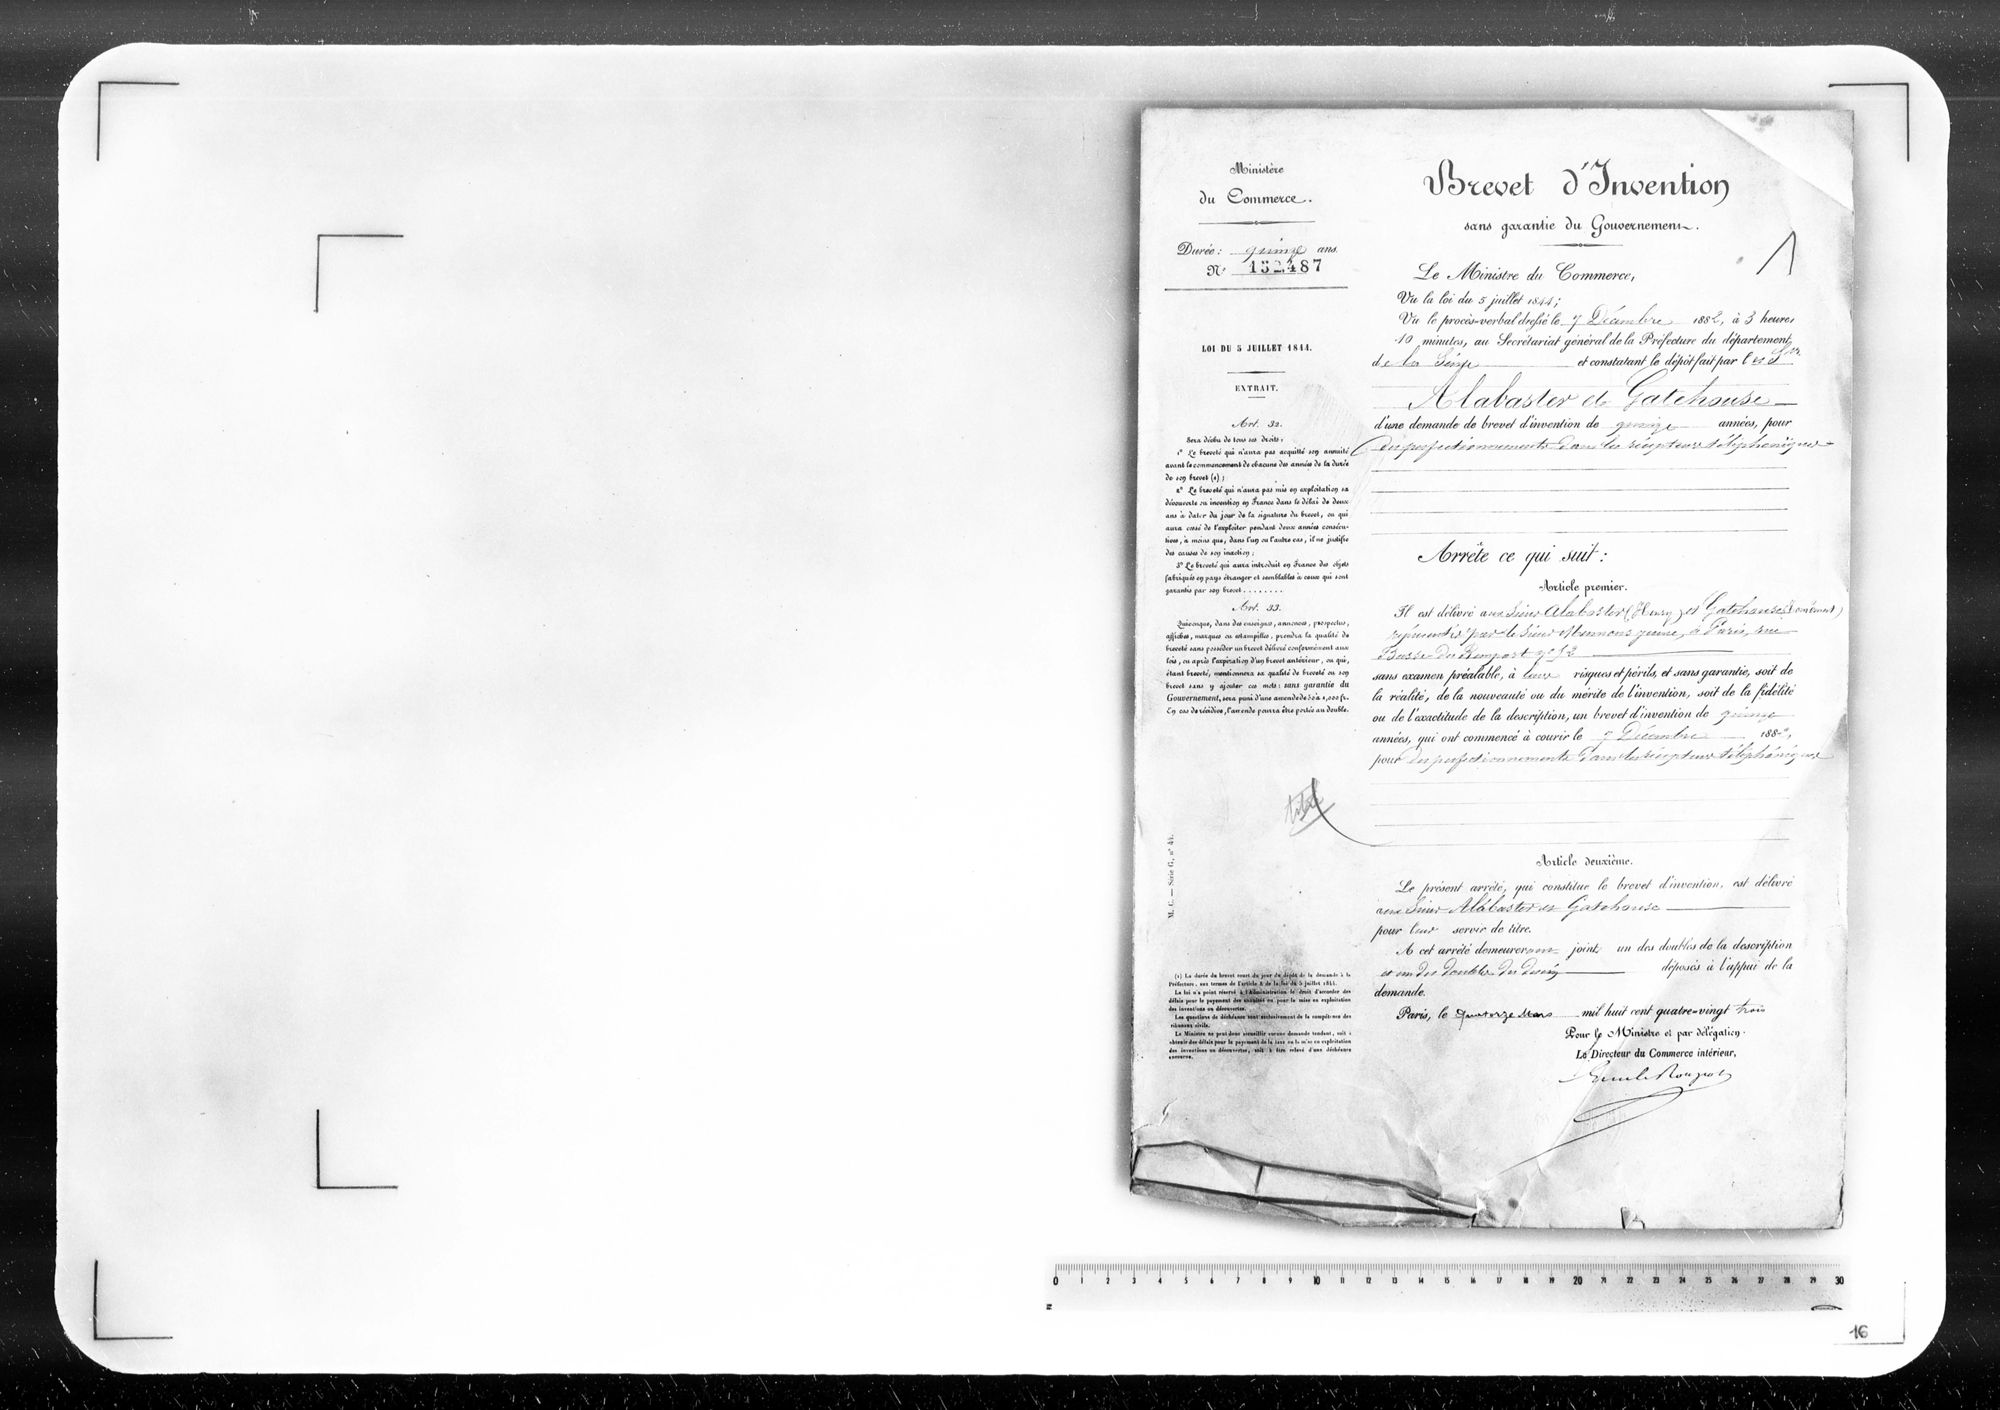 Ministère
du Commerce.
Durée : quinze ans.
N° 152487
LOI DU 5 JUILLET 1844.
EXTRAIT.
Art. 32.
Sera déchu de tous ses droits :
1° Le breveté qui n'aura pas acquitté son annuité
avant le commencement de chacune des années de la durée
de son brevet (1) ;
2° Le breveté qui n'aura pas mis en exploitation sa
découverte ou invention en France dans le délai de deux
ans à dater du jour de la signature du brevet, ou qui
aura cessé de l'exploiter pendant deux années consécu-
tives, à moins que, dans l'un ou l'autre cas, il ne justifie
des causes de son inaction ;
3° Le breveté qui aura introduit en France des objets
fabriqués en pays étranger et semblables à ceux qui sont
garantis par son brevet ........
Art. 33.
Quiconque, dans des enseignes, annonces, prospectus,
affiches, marques ou estampilles, prendra la qualité de
breveté sans posséder un brevet délivré conformément aux
lois, ou après l'expiration d'un brevet antérieur, ou qui,
étant breveté, mentionnera sa qualité de breveté ou son
brevet sans y ajouter ces mots : sans garantie du
Gouvernement, sera puni d'une amende de 50 à 1,000 fr.
En cas de récidive, l'amende pourra être portée au double.
M. C. — Série G, n° 44.
(1) La durée du brevet court du jour du dépôt de la demande à la
Préfecture, aux termes de l'article 8 de la loi du 5 juillet 1844.
La loi n'a point réservé à l'Administration le droit d'accorder des
délais pour le payement des annuités ou pour la mise en exploitation
des inventions ou découvertes.
Les questions de déchéance sont exclusivement de la compétence des
tribunaux civils.
Le Ministre ne peut donc accueillir aucune demande tendant, soit à
obtenir des délais pour le payement de la taxe ou la mise en exploitation
des inventions ou découvertes, soit à être relevé d'une déchéance
encourue.
Brevet d'Invention
sans garantie du Gouvernement.
1
Le Ministre du Commerce,
Vu la loi du 5 juillet 1844 ;
Vu le procès-verbal dressé le 7 Décembre 1882, à 3 heures
10 minutes, au Secrétariat général de la Préfecture du département
de la Seine et constatant le dépôt fait par les Srs
Alabaster et Gatehouse
d'une demande de brevet d'invention de quinze années, pour
des perfectionnements dans les récepteurs téléphoniques
Arrête ce qui suit :
Article premier.
Il est délivré aux Sieurs Alabaster (Henry) et Gatehouse
représentés par le Sieur jeune, à Paris, rue
Basse du Rempart n°
sans examen préalable, à leurs risques et périls, et sans garantie, soit de
la réalité, de la nouveauté ou du mérite de l'invention, soit de la fidélité
ou de l'exactitude de la description, un brevet d'invention de quinze
années, qui ont commencé à courir le 7 Décembre 1882,
pour des perfectionnements dans les récepteurs téléphoniques
Article deuxième.
Le présent arrêté, qui constitue le brevet d'invention, est délivré
aux Sieurs Alabaster et Gatehouse
pour leur servir de titre.
A cet arrêté demeureront joints un des doubles de la description
et un des doubles du dessin déposés à l'appui de la
demande.
Paris, le quatorze Mars mil huit cent quatre-vingt trois
Pour le Ministre et par délégation.
Le Directeur du Commerce intérieur,
0 1 2 3 4 5 6 7 8 9 10 11 12 13 14 15 16 17 18 19 20 21 22 23 24 25 26 27 28 29 30
16